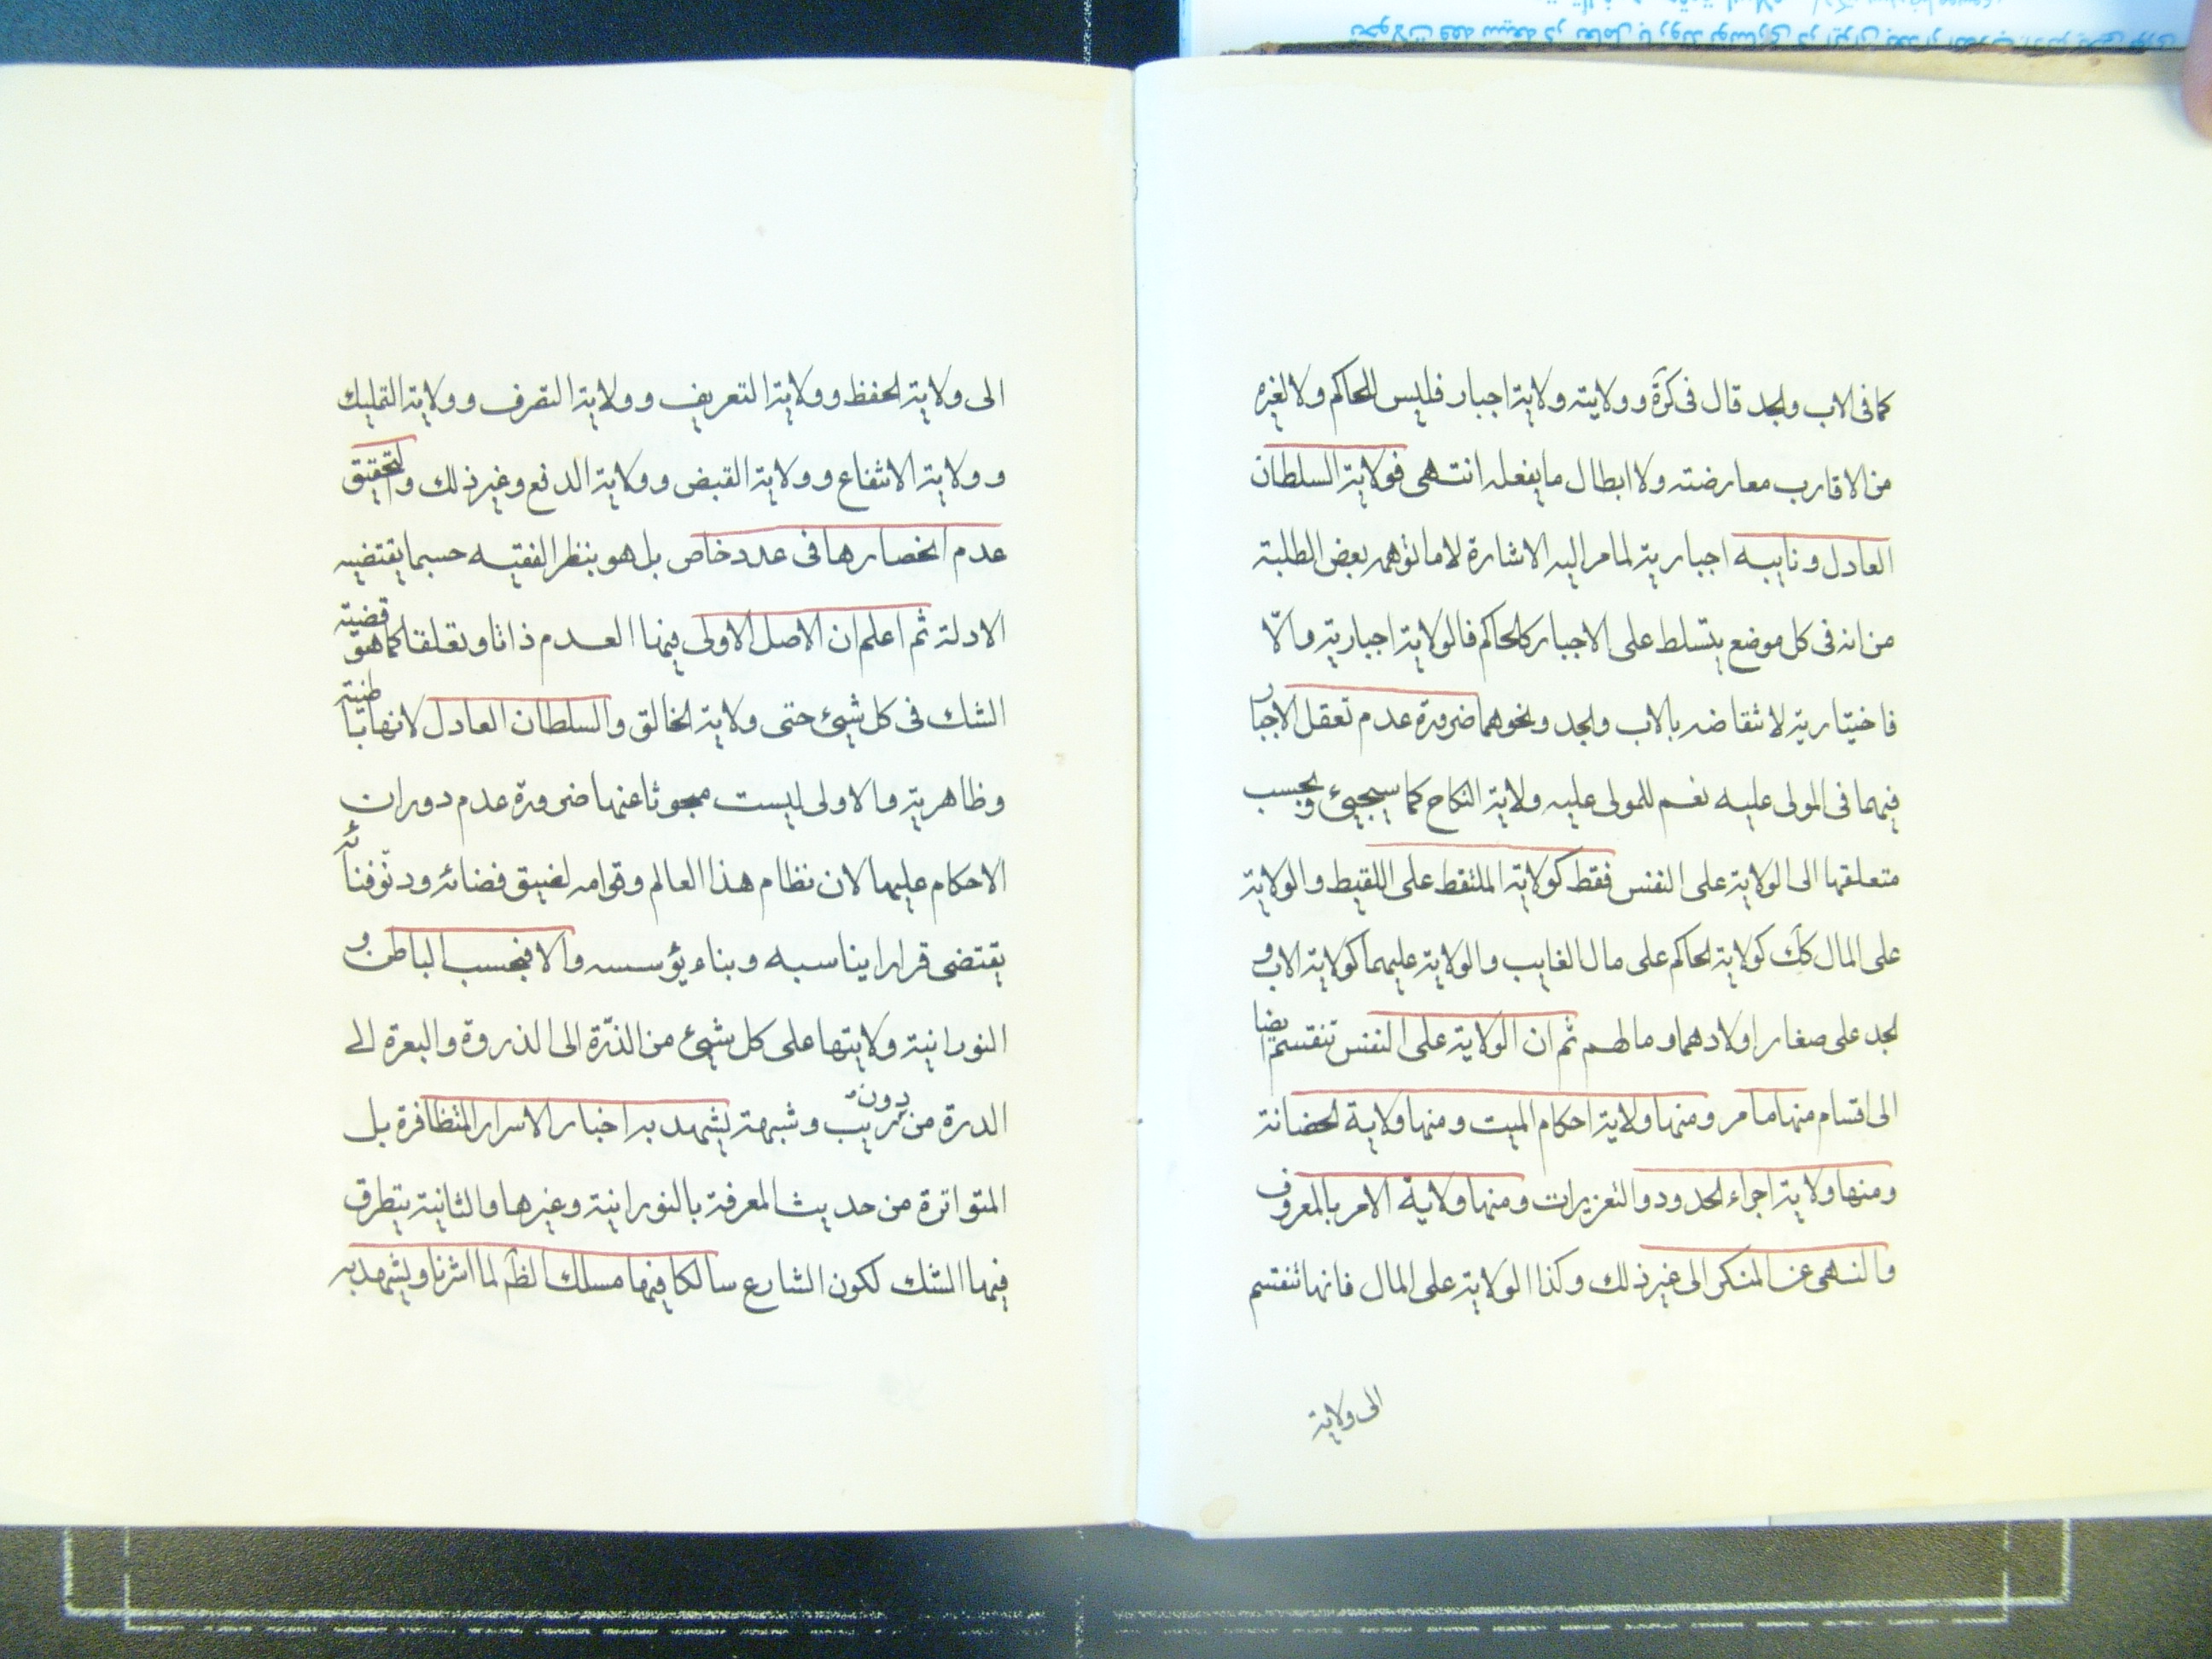 كما فى الاب والجد قال فى كرة وولايته ولاية اجبار فليس للحاكم ولا لغيره
من الاقارب معارضته ولا ابطال ما يفعله انتهى فولاية السلطان
العادل ونايبه اجبارية لما مر اليه الاشارة لا ما توهمه بعض الطلبة
من انه فى كل موضع يتسلط على الاجبار كالحاكم فالولاية اجبارية والّا
فاختيارية لانتقاضه بالاب والجد ونحوهما ضرورة عدم تعقل الاجبار
فيهما فى المولى عليه نعم للمولى عليه ولاية النكاح كما سيجيئ وبحسب
متعلقها الى الولاية على النفس فقط كولاية الملتقط على اللقيط والولاية
على المال كك كولاية الحاكم على مال الغايب والولاية عليهما كولاية الاب و
الجد على صغار اولادهما ومالهم ثم ان الولاية على النفس تنقسم ايضا
الى اقسام منها ما مر ومنها ولاية احكام الميت ومنها ولاية الحضانة
ومنها ولاية اجراء الحدود والتعزيرات ومنها ولاية الامر بالمعروف
والنهى عن المنكر الى غير ذلك وكذا الولاية على المال فانها تنقسم
الى ولاية
الى ولاية الحفظ وولاية التعريف وولاية التصرف وولاية التمليك
وولاية الانتفاع وولاية القبض وولاية الدفع وغير ذلك والتحقيق
عدم انحصارها فى عدد خاص بل هو بنظر الفقيه حسبما يقتضيه
الادلة ثم اعلم ان الاصل الاولى فيها العدم ذاتا وتعلقا كما هو قضية
الشك فى كل شيئ حتى ولاية الخالق والسلطان العادل لانها باطنية
وظاهرية والاولى ليست مبحوثا عنها ضرورة عدم دوران
الاحكام عليها لان نظام هذا العالم وقوامه لضيق فضائه ودنوّ فنائه
يقتضى قرارا يناسبه وبناء يؤسسه والا فبحسب الباطن و
النورانية ولايتها على كل شيئ من الذرّة الى الذروة والبعرة الى
الدرة من دون ريب وشبهة يشهد به اخبار الاسرار المتظافرة بل
المتواترة من حديث المعرفة بالنورانية وغيرها والثانية يتطرق
فيها الشك لكون الشارع سالكا فيها مسلك الظ لما اشرنا ويشهد به